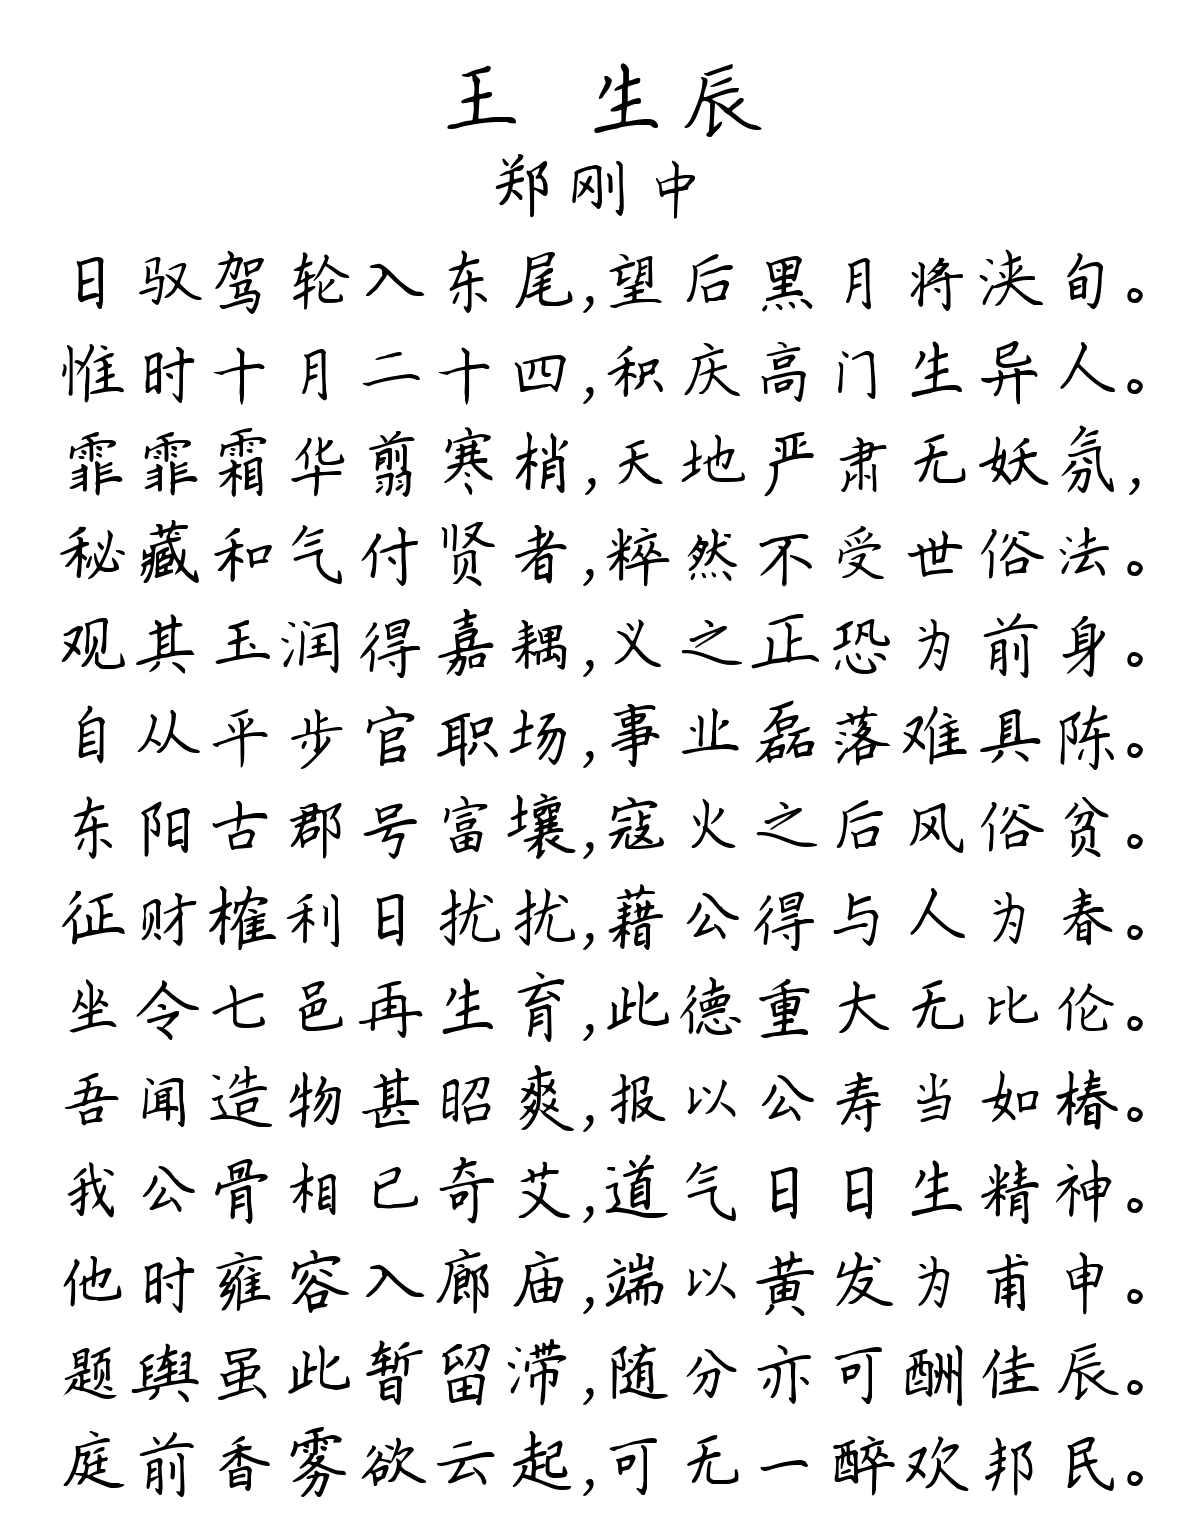 王 生辰
郑刚中
日驭驾轮入东尾,望后黑月将浃旬。
惟时十月二十四,积庆高门生异人。
霏霏霜华翦寒梢,天地严肃无妖氛,
秘藏和气付贤者,粹然不受世俗法。
观其玉润得嘉耦,义之正恐为前身。
自从平步官职场,事业磊落难具陈。
东阳古郡号富壤,寇火之后风俗贫。
征财榷利日扰扰,藉公得与人为春。
坐令七邑再生育,此德重大无比伦。
吾闻造物甚昭爽,报以公寿当如椿。
我公骨相已奇艾,道气日日生精神。
他时雍容入廊庙,端以黄发为甫申。
题舆虽此暂留滞,随分亦可酬佳辰。
庭前香雾欲云起,可无一醉欢邦民。